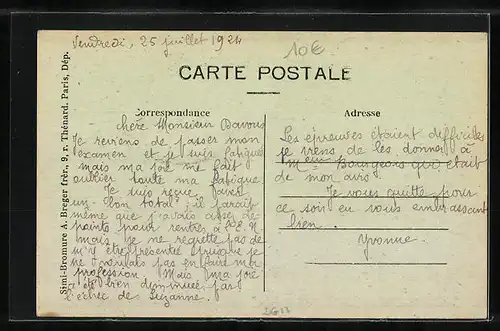 Vendredi, 25 juillet 1924
10€
CARTE POSTALE
Correspondance
Adresse
Simi-Bromure A. Breger frèr., 9, r. Thénard, Paris, Dép.
chère Monsieur
Je reviens de passer mon
examen et je suis fatiguée
mais ma joie me fait
oublier toute ma fatigue
Je suis reçue avec
un bon total; il paraît
même que j'avais assez de
points pour rentrer à
mais je ne regrette pas de
m'y être présentée puisque je
ne voulais pas en faire ma
profession. Mais ma joie
a été bien diminuée par
l'échec de Suzanne.
Les épreuves étaient difficiles
je viens de les donner à
Bourgeois qui était
de mon avis
Je vous quitte pour
ce soir en vous embrassant
bien.
Yvonne.